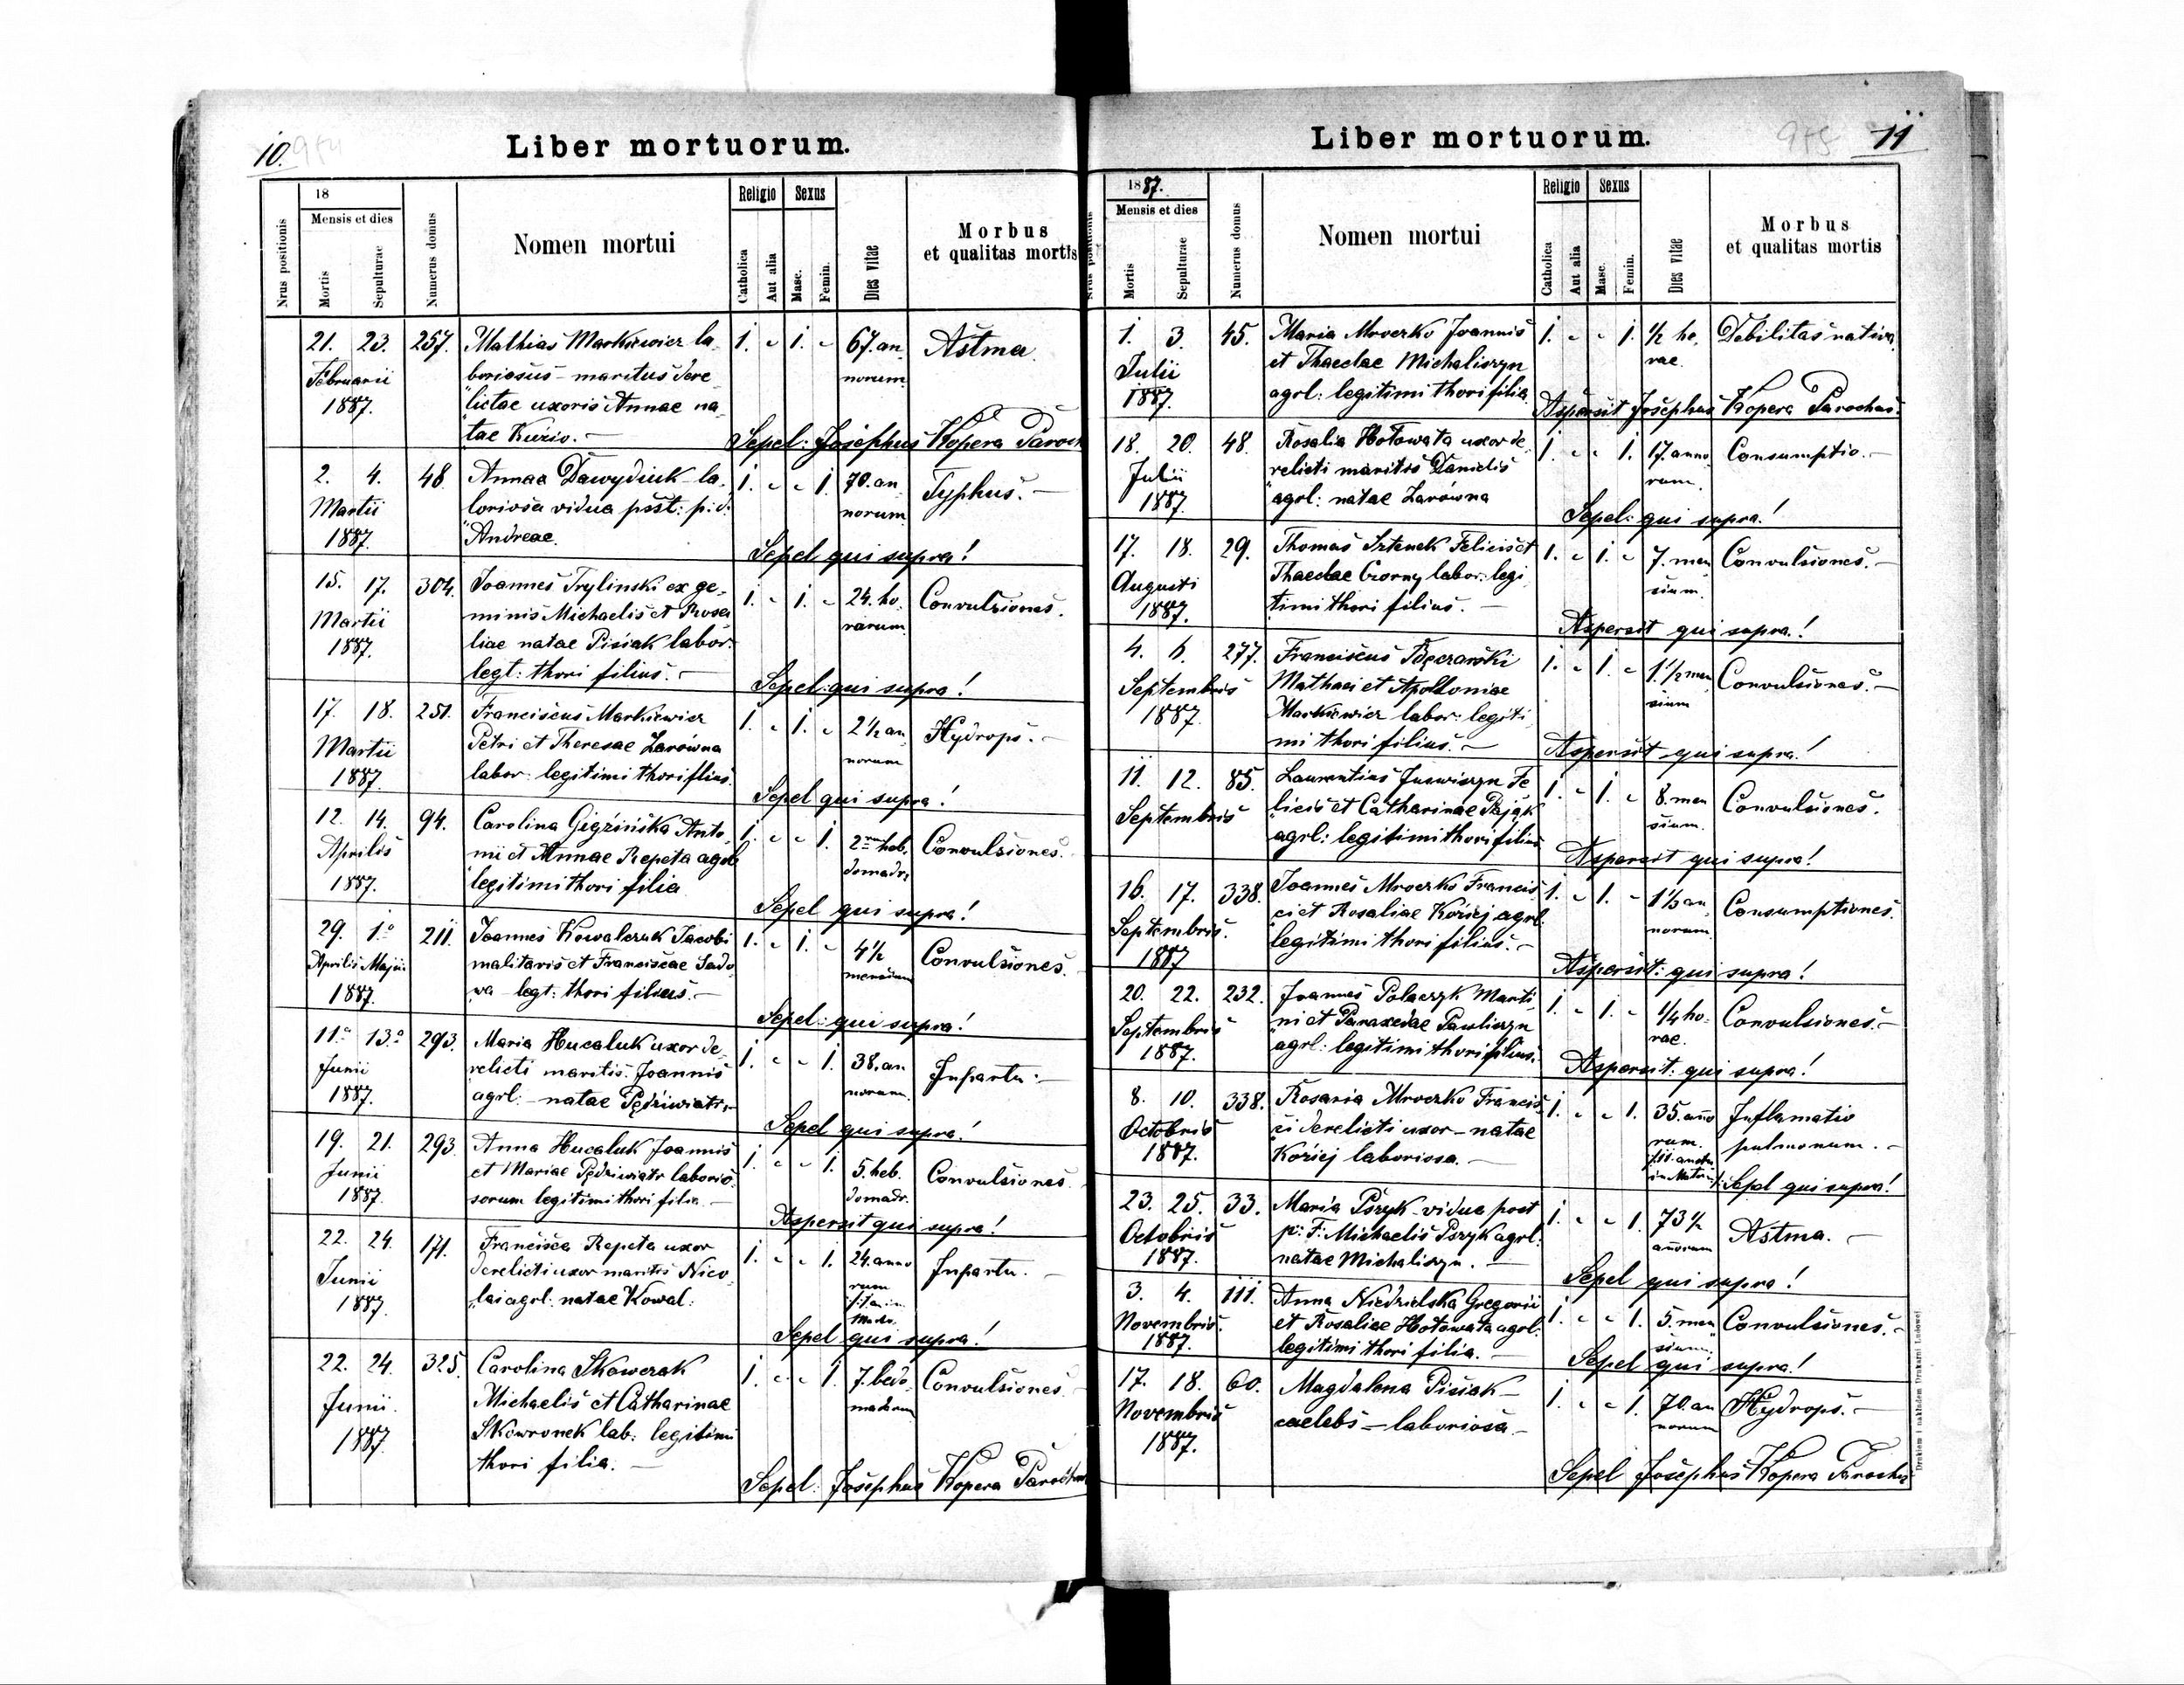 10.
Liber mortuorum.
Nrus positionis
18
Mensis et dies
Mortis
Sepulturae
Numerus domus
Nomen mortui
Religio
Catholica
Aut alia
Sexus
Masc.
Femin.
Dies vitae
Morbus
et qualitas mortis
21. 23. 257. Mathias Markiewicz la„ 1. „ 1. „ 67. an„ Astma.
Februarii boriosus – maritus dere„ norum
1887. „lictae uxoris Annae na„
„tae Kuzio. – Sepel: Josephus Kopera Paroch
2. 4. 48 Annaa Dawydiuk – la„ 1. „ „ 1. 70. an„ Typhus. –
Martii boriosa vidua post: p: d: norum
1887. „Andreae. Sepel qui supra!
15. 17. 304. Joannes Trylinski ex ge„ 1. „ 1. „ 24. ho„ Convulsiones.
Martii minis Michaelis et Rosa rarum
1887. liae natae Pisiak labor:
legt: thori filius. – Sepel: qui supra!
17. 18. 251. Franciscus Markiewicz 1. „ 1. „ 2½ an„ Hydrops. –
Martii Petri et Theresae Zarówna norum
1887. labor: legitimi thori filius. Sepel qui supra!
12. 14. 94. Carolina Gigzińska Anto„ 1. „ „ 1. 2 heb„ Convulsiones.
Aprilis nii et Annae Repeta agrl domadr,
1887. „legitimi thori filia Sepel qui supra!
29. 1.º 211. Joannes Kowalczuk Jacobi 1. „ 1. „ 4½ Convulsiones.
Aprilis Majii malitaris et Franciscae Sado„ mensium
1887. „wa – legt: thori filius. – Sepel: qui supra!
11.º 13.º 293. Maria Hucaluk uxor de„ 1. „ „ 1. 38. an„ Inpartu. –
Junii relicti maritis. Joannis norum
1887. agrl: – natae Pędziwiatr – Sepel qui supra!
19. 21. 293. Anna Hucaluk Joannis 1. „ „ 1. 5. heb„ Convulsiones.
Junii et Mariae Pędziwiatr laborio„ domadr.
1887. sorum legitimi thori filia – Aspersit qui supra!
22. 24. 171. Francisca Repeta uxor 1. „ „ 1. 24. anno Inpartu. –
Junii derelicti uxor maritis Nico„ rum
1887. „lai agrl: natae Kowal: Sepel qui supra!
22. 24. 325. Carolina Skowczak 1. „ „ 1. 7. bedo„ Convulsiones. –
Junii. Michaelis et Catharinae madarum
1887. Skowronek lab: legitimi
thori filia. – Sepel: Josephus Kopera Parochus
11
Liber mortuorum.
Nrus positionis
1887.
Mensis et dies
Mortis
Sepulturae
Numerus domus
Nomen mortui
Religio
Catholica
Aut alia
Sexus
Masc.
Femin.
Dies vitae
Morbus
et qualitas mortis
1. 3. 45. Maria Mroczko Joannis 1. „ „ 1. ½ ho„ Debilitas nativa
Julii et Thaeclae Michaliszyn rae.
1887. agrl: legitimi thori filia. Aspersit Josephus Kopera Parochus.
18. 20. 48. Rosalia Hołowata uxor de„ 1. „ „ 1. 17. anno Consumptio. –
Julii relicti maritis Danielis rum.
1887. „agrl: natae Zarówna Sepel: qui supra!
17. 18. 29. Thomas Sztenek Felicis et 1. „ 1. „ 7. men Convulsiones. –
Augusti Thaeclae Czorny labor: legi„ sium.
1887. timi thori filius. – Aspersit qui supra!
4. 6. 277. Franciscus Bęczarski 1. „ 1. „ 1.½ men Convulsiones. –
Septembris Mathaei et Apolloniae sium
1887. Markiewicz labor: legiti„
mi thori filius. – Aspersit qui supra!
11. 12. 85. Laurentius Juswiszyn Fe 1. „ 1. „ 8. men Convulsiones.
Septembris „licis et Catharinae Pająk sium.
agrl: legitimi thori filius Aspersit qui supra!
16. 17. 338. Joannes Mroczko Francis„ 1. „ 1. „ 1⅓ an„ Consumptiones.
Septembris. ci et Rosaliae Koziej agrl. norum.
1887 „legitimi thori filius. – Aspersit: qui supra!
20. 22. 232. Joannes Polaczyk Marti„ 1. „ 1. „ ¼ ho„ Convulsiones. –
Septembris ni et Paraxedae Pauliszyn rae.
1887. agrl: legitimi thori filius. Aspersit: qui supra!
8. 10. 338. Rosaria Mroczko Francis„ 1. „ „ 1. 35. año Inflamatio
Octobris ci derelicti uxor – natae rum. pulmonum. –
1887. Koziej laboriosa. – Sepel qui supra!
23. 25. 33. Maria Pszyk – vidua post 1. „ „ 1. 73½ Astma. –
Octobris p: F: Michaelis Pszyk agrl: añorum
1887. natae Michaliszyn. – Sepel qui supra!
3. 4. 111. Anna Niedzielska Gregorii 1. „ „ 1. 5. men Convulsiones. –
Novembris. et Rosaliae Hołowata agrl: sium.
1887. legitimi thori filia. – Sepel qui supra!
17. 18. 60. Magdalena Pisiak – 1. „ „ 1. 70. an Hydrops. –
Novembris caelebs – laboriosa – norum
1887. Sepel Josephus Kopera Parochus
Drukiem i nakładem Drukarni Ludowej